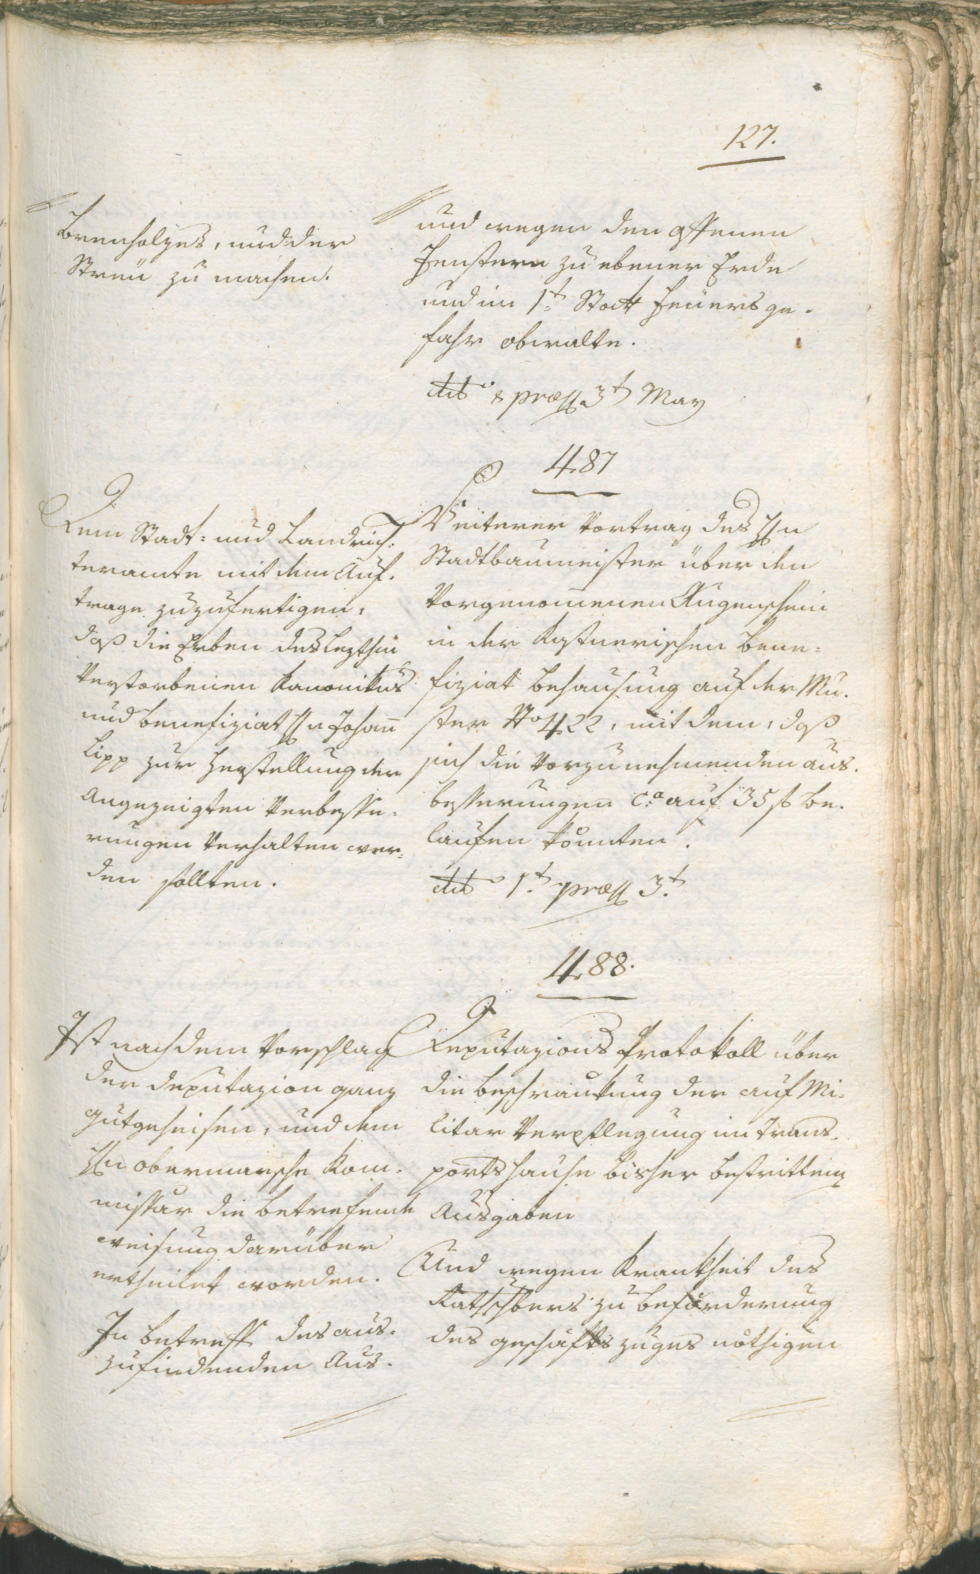 127.
Brenholzes, und der
Streu zu machen.
und wegen den offenen
Fenstern zu ebener Erde
und im 1t Stock Feuersge-
fahr obwalte.
dtto & præss 3t May
487
Dem Stadt- und Landrich-
teramte mit dem Auf-
trage zuzufertigen,
daß die Erben des lezthin
verstorbenen Kanonikus
und Benefiziat Hn Johann
Lipp zur Herstellung der
Angezeigten Verbesse-
rungen verhalten wer-
den sollten.
Weiterer Vortrag des Hn
Stadtbaumeister über den
Vorgenommenen Augenschein
in der Kastnerischen Bene-
fiziat Behausung auf der Mu-
ster No 422, mit dem, daß
sich die Vorzunehmenden aus-
besserungen ca auf 35 f be-
laufen könnten.
dtto 1t præss 3t
488.
Ist nach dem Vorschlag
der Deputazion ganz
gutgeheisen, und dem
Hn obermarsche Kom-
missär die betrefende
weisung darüber
ertheilet worden.
In betreff des aus-
zufindenden Aus-
Deputazions Protokoll über
die Beschrankung der auf Mi-
litar Verpflegung im Trans-
portshause bisher bestrittenen
Ausgaben
Und wegen Krankheit des
zu beförderung
des geschäftszuges nöthigen